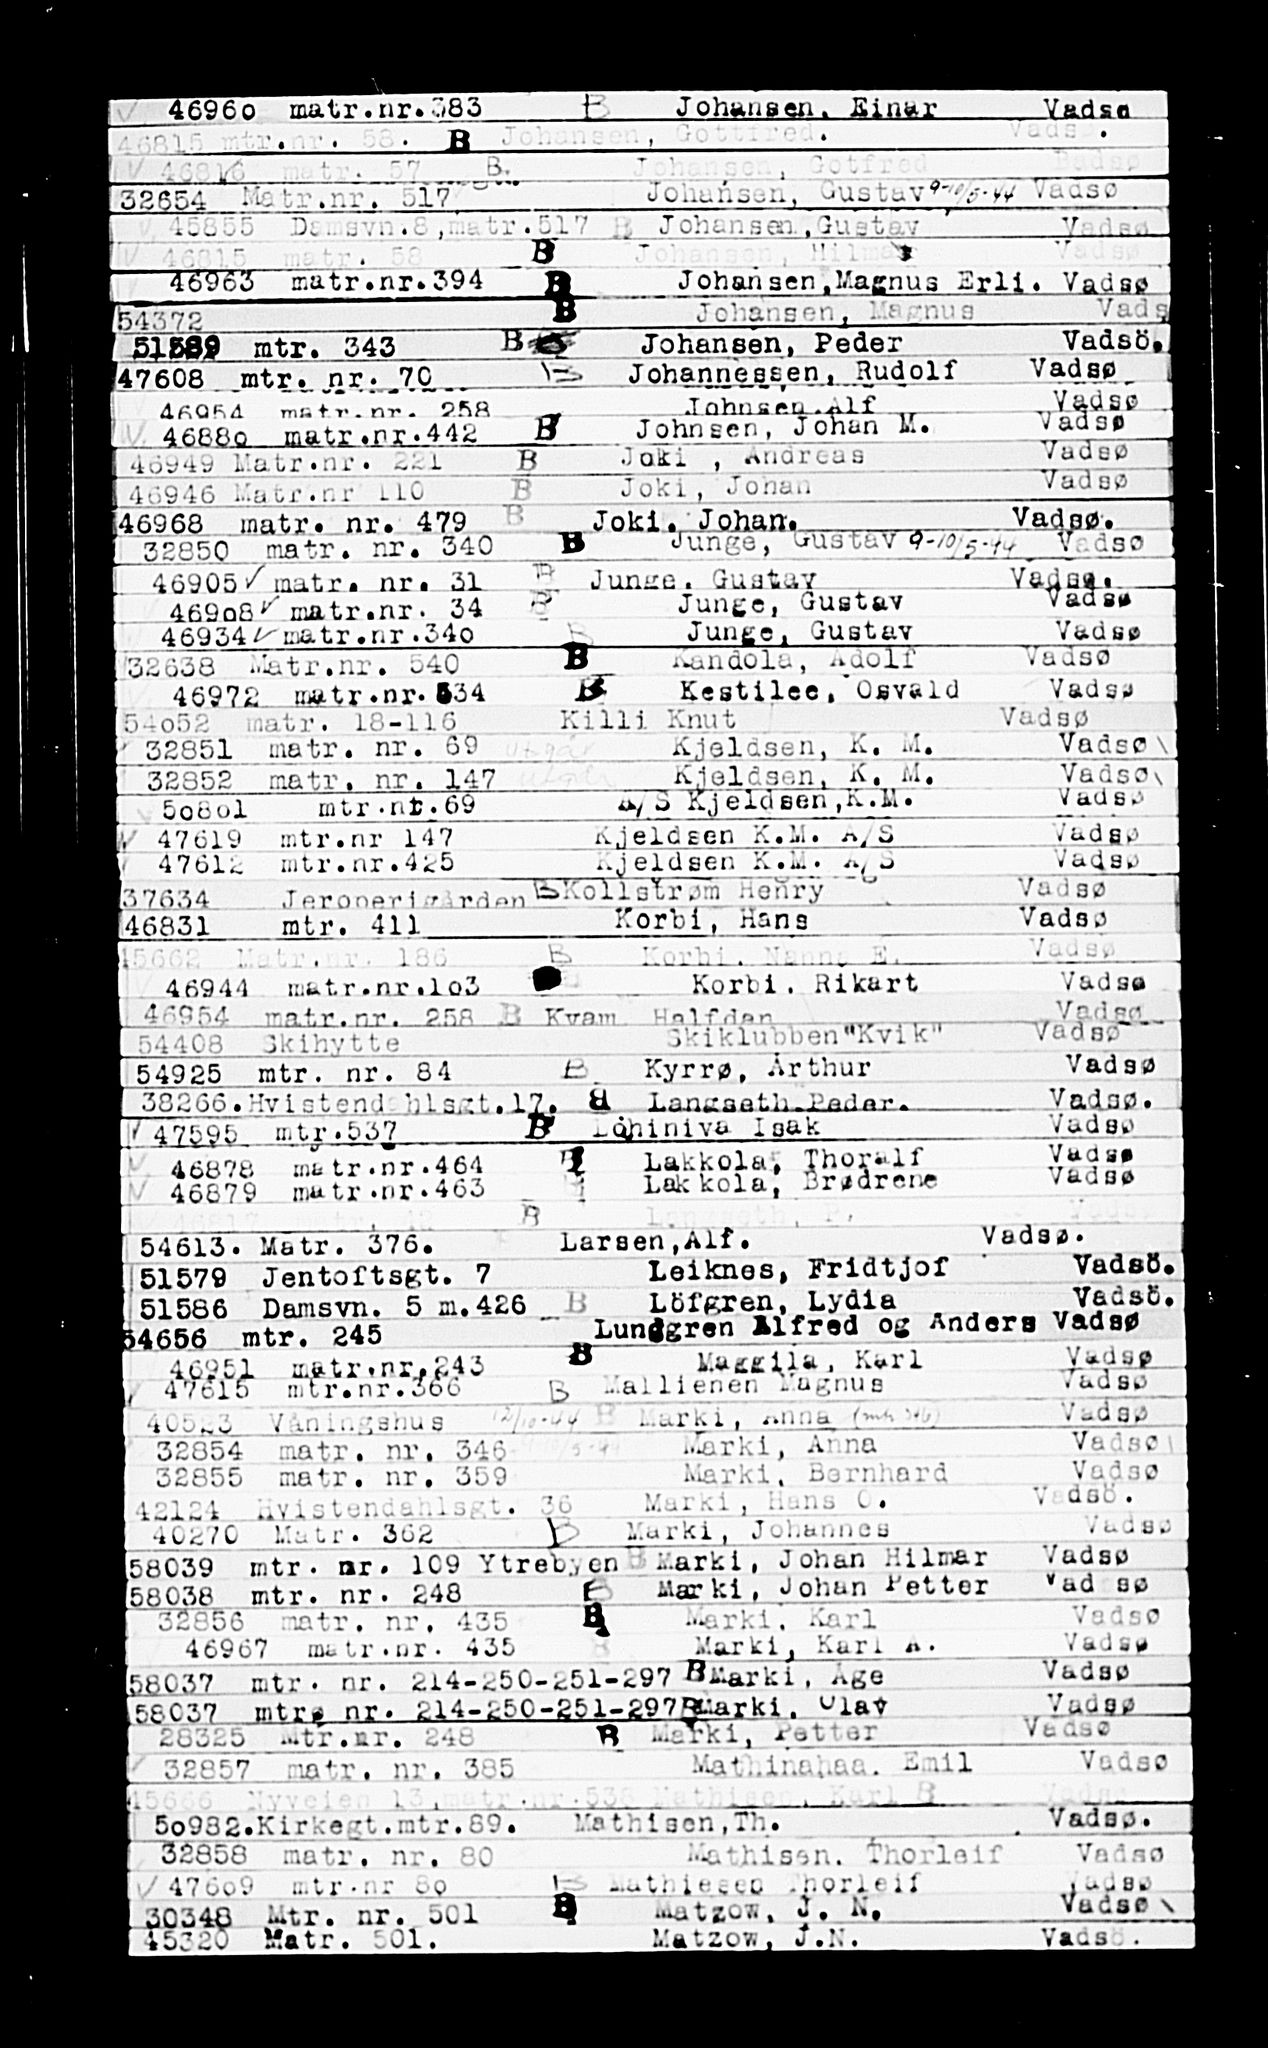 46960 matr.nr.383 B Johansen, Einar Vadsø
46815 mtr.nr. 58. B Johansen, Gottfred. Vadsø.
46816 matr. 57 B. Johansen, Gotfred Badsø
32654 Matr.nr. 517 Johansen, Gustav 9-10/5-44 Vadsø
45855 Damsvn.8,matr.517 B Johansen,Gustav Vadsø
46815 matr. 58 B Johansen, Hilmar Vadsø
46963 matr.nr.394 B Johansen,Magnus Erli. Vadsø
54372 B Johansen, Magnus Vads
51589 mtr. 343 B Johansen, Peder Vadsö.
47608 mtr. nr. 70 B Johannessen, Rudolf Vadsø
46954 matr.nr. 258 Johnsen,Alf Vadsø
46880 matr.nr.442 B Johnsen, Johan M. Vadsø
46949 Matr.nr. 221 B Joki , Andreas Vadsø
46946 Matr.nr 110 B Joki, Johan Vadsø
46968 matr. nr. 479 B Joki. Johan. Vadsø.
32850 matr. nr. 340 B Junge, Gustav 9-10/5-44 Vadsø
46905 matr. nr. 31 B Junge. Gustav Vadsø.
46908 matr.nr. 34 B Junge, Gustav Vadsø
46934 matr.nr.340 B Junge, Gustav Vadsø
32638 Matr.nr. 540 B Kandola, Adolf Vadsø
46972 matr.nr. 534 B Kestilee, Osvald Vadsø
54052 matr. 18-116 Killi Knut Vadsø
32851 matr. nr. 69 utgår Kjeldsen, K. M. Vadsø
32852 matr. nr. 147 utgår Kjeldsen, K. M. Vadsø
50801 mtr.nr.69 A/S Kjeldsen,K.M. Vadsø
47619 mtr.nr 147 Kjeldsen K.M. A/S Vadsø
47612 mtr.nr.425 Kjeldsen K.M. A/S Vadsø
37634 Jeronerigården B Kollstrøm Henry Vadsø
46831 mtr. 411 Korbi, Hans Vadsø
45662 Matr.nr. 186 B Korbi. Nanna E. Vadsø
46944 matr.nr.103 Korbi. Rikart Vadsø
46954 matr.nr. 258 B Kvam Halfdan Vadsø
54408 Skihytte Skiklubben"Kvik" Vadsø
54925 mtr. nr. 84 B Kyrrø, Arthur Vadsø
38266.Hvistendahlsgt.17. B Langseth Peder. Vadsø.
47595 mtr.537 B Lohiniva Isak Vadsø
46878 matr.nr.464 B Lakkola, Thoralf Vadsø
46879 matr.nr.463 Lakkola, Brødrene Vadsø
46817 matr. 42 B Langseth, P. Vadsø
54613. Matr. 376. Larsen,Alf. Vadsø.
51579 Jentoftsgt. 7 Leiknes, Fridtjof Vadsö.
51586 Damsvn. 5 m.426 B Löfgren, Lydia Vadsö.
54656 mtr. 245 Lundgren Alfred og Anders Vadsø
46951 matr.nr.243 B Maggila, Karl Vadsø
47615 mtr.nr.366 B Mallienen Magnus Vadsø
40523 Våningshus 12/10-44 B Marki, Anna (mtr 346) Vadsø
32854 matr. nr. 346 9-10/5-44 Marki, Anna Vadsø
32855 matr. nr. 359 Marki, Bernhard Vadsø
42124 Hvistendahlsgt. 36 Marki, Hans O. Vadsö.
40270 Matr. 362 B Marki, Johannes Vadsø
58039 mtr. nr. 109 Ytrebyen B Marki, Johan Hilmar Vadsø
58038 mtr. nr. 248 B Marki, Johan Petter Vadsø
32856 matr. nr. 435 B Marki. Karl Vadsø
46967 matr.nr. 435 B Marki, Karl A. Vadsø
58037 mtr. nr. 214-250-251-297 B Marki, Åge Vadsø
58037 mtr. nr. 214-250-251-297 B Marki. Olav Vadsø
28325 Mtr.nr. 248 B Marki, Petter Vadsø
32857 matr. nr. 385 Mathinahaa. Emil Vadsø
45666 Nyveien 13,matr.nr.538 Mathisen, Karl B Vadsø
50982.Kirkegt.mtr.89. Mathisen,Th. Vadsø.
32858 matr. nr. 80 Mathisen. Thorleif Vadsø
47609 mtr.nr 80 B Mathiesen Thorleif Vadsø
30348 Mtr. nr. 501 B Matzow, J. N. Vadsø
45320 Matr. 501. Matzow, J.N. Vadsö.